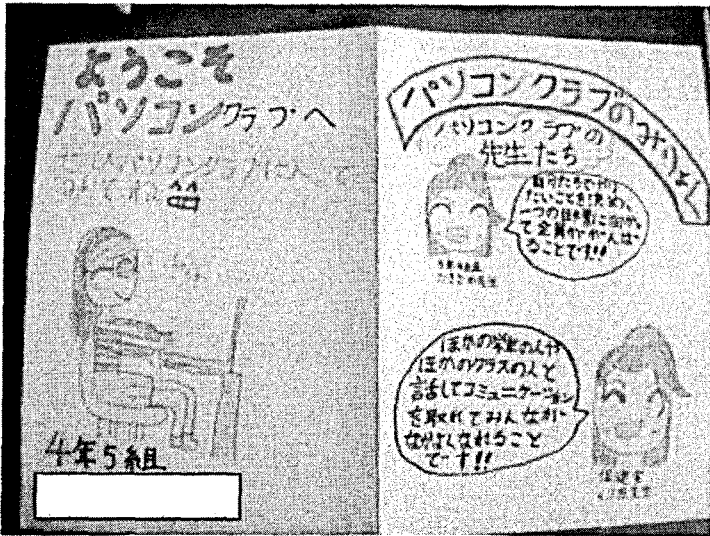 ようこそ
パソコンクラブへ
4年5組
パソコンクラブのみりょく
パソコンクラブの
先生たち
自分たちでやり
たいことを決め、
一つの目標に向かっ
て全員ががんば
ることです!!
ほかの学年の人や
ほかのクラスの人と
話してコミュニケーション
を取れてみんなが
なかよくなれること
です!!